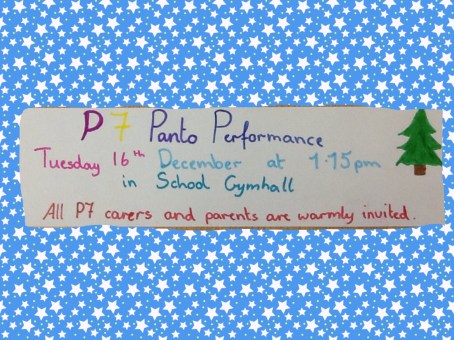 P7 Panto Performance
Tuesday 16th December at 1.15pm
in School Gymhall
All P7 carers and parents are warmly invited.